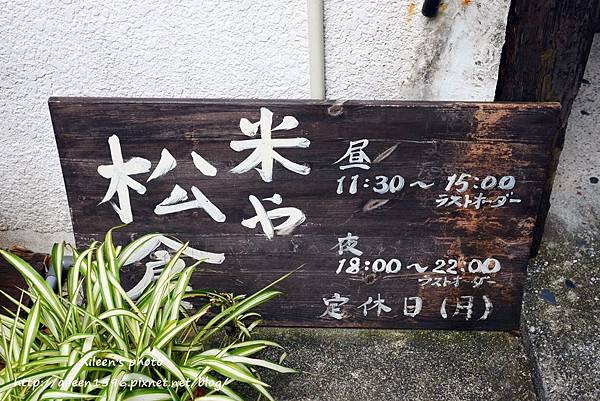 米や
松倉
昼
11:30～15:00
ラストオーダー
夜
18:00～22:00
ラストオーダー
定休日(月)
Aileen's photo
http://aileen1396.pixnet.net/blog/